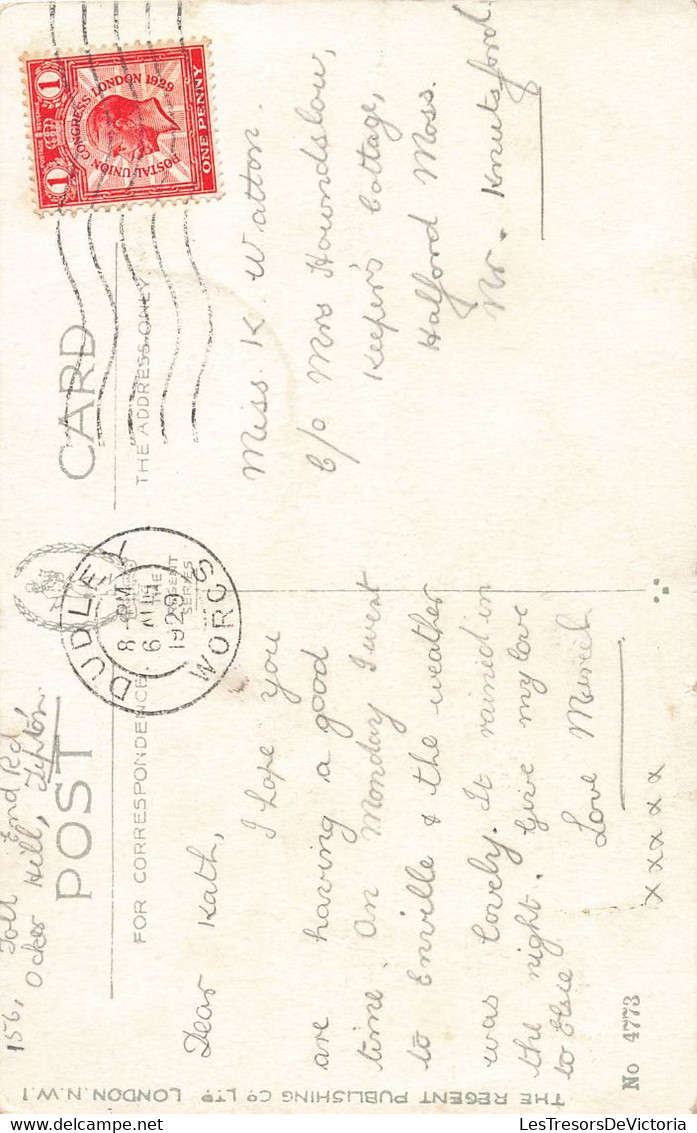 156, Toll End Rd
Ocker Hill, Tipton.
POST CARD
FOR CORRESPONDENCE
THE ADDRESS ONLY
THE
REGENT
SERIES
DUDLEY
8 - PM
6 AUG
1929
WORCS
1 POSTAL UNION CONGRESS LONDON 1929 1
ONE PENNY
Dear Kath,
I hope you
are having a good
time. On Monday I went
to Enville & the weather
was lovely. It rained in
the night. Give my love
to Elsie
Love Muriel
x x x x x
Miss K. Watton.
C/o Mrs Houndslow,
Keeper's Cottage,
Halford Moss.
Nr. Knutsford.
No 4773
THE REGENT PUBLISHING CO LTD LONDON. N.W.1
LesTresorsDeVictoria